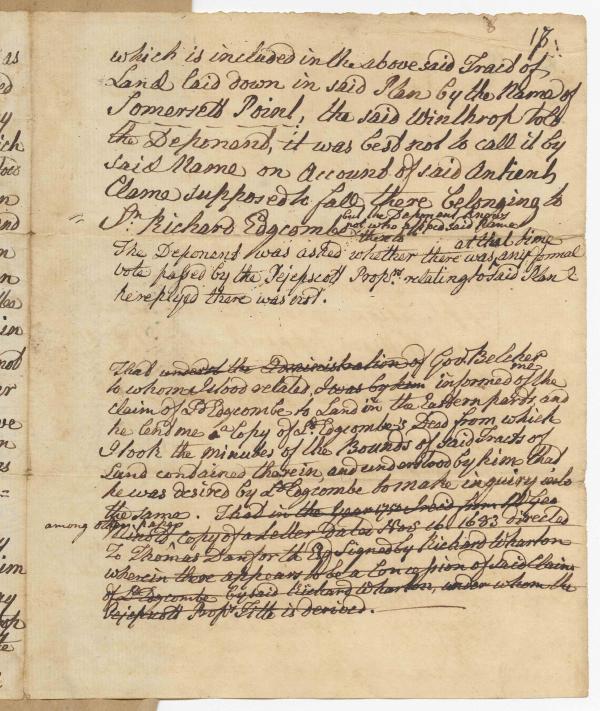 18.
which is included in the above said Tract of
Land laid down in said Plan by the Name of
Somersett Point, the said Winthrop told
the Deponent, it was best not to call it by
said Name on Account of said Antient
Clame supposed to fall there belonging to
Sr. Richard Edgcombe but the Deponent knows
not who affixed said Name
thereto at that time
The Deponent was asked whether there was any formal
vote passed by the Pejepscott Proprs. relating to said Plan &
he replyed there was not.
That under the Administration of Govr. Belcher
to whome I stood related, I was by him informed me of the
claim of Ld Edgcombe to Land in the Eastern parts, and
he lent me a Copy of Ld. Edgcombe's Deed from which
I took the minutes of the Bounds of said Tracts of
Land contained therein and understood by him that
he was desired by Ld Edgcombe to make inquiry into
the same. That in the Year 1750
among other paper
Copy of a Letter Dated Novr 10 1683 directed
To Thomas Danforth Esq Signed by Richard Wharton
wherein there appears to be a Concession of said Claim
of Ld Edgcombe by said Richard Wharton, under whom the
Pejepscott Proprs Title is derived.
as
ed
ich
on
and
in
not
er
ve
as
him
ny
the